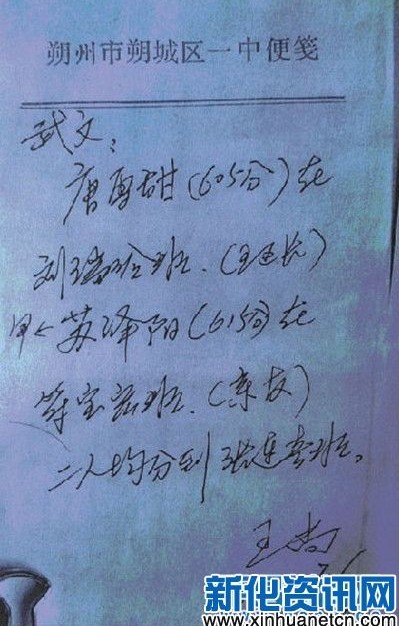 朔州市朔城区一中便笺
武文：
唐雨甜（605分）在
刘瑞玲班.（王连长）
甲←苏泽阳（615分）在
宝宏班.（亲友）
二人均分到张连春班。
王尚
新化资讯网
www.xinhuanetcn.com